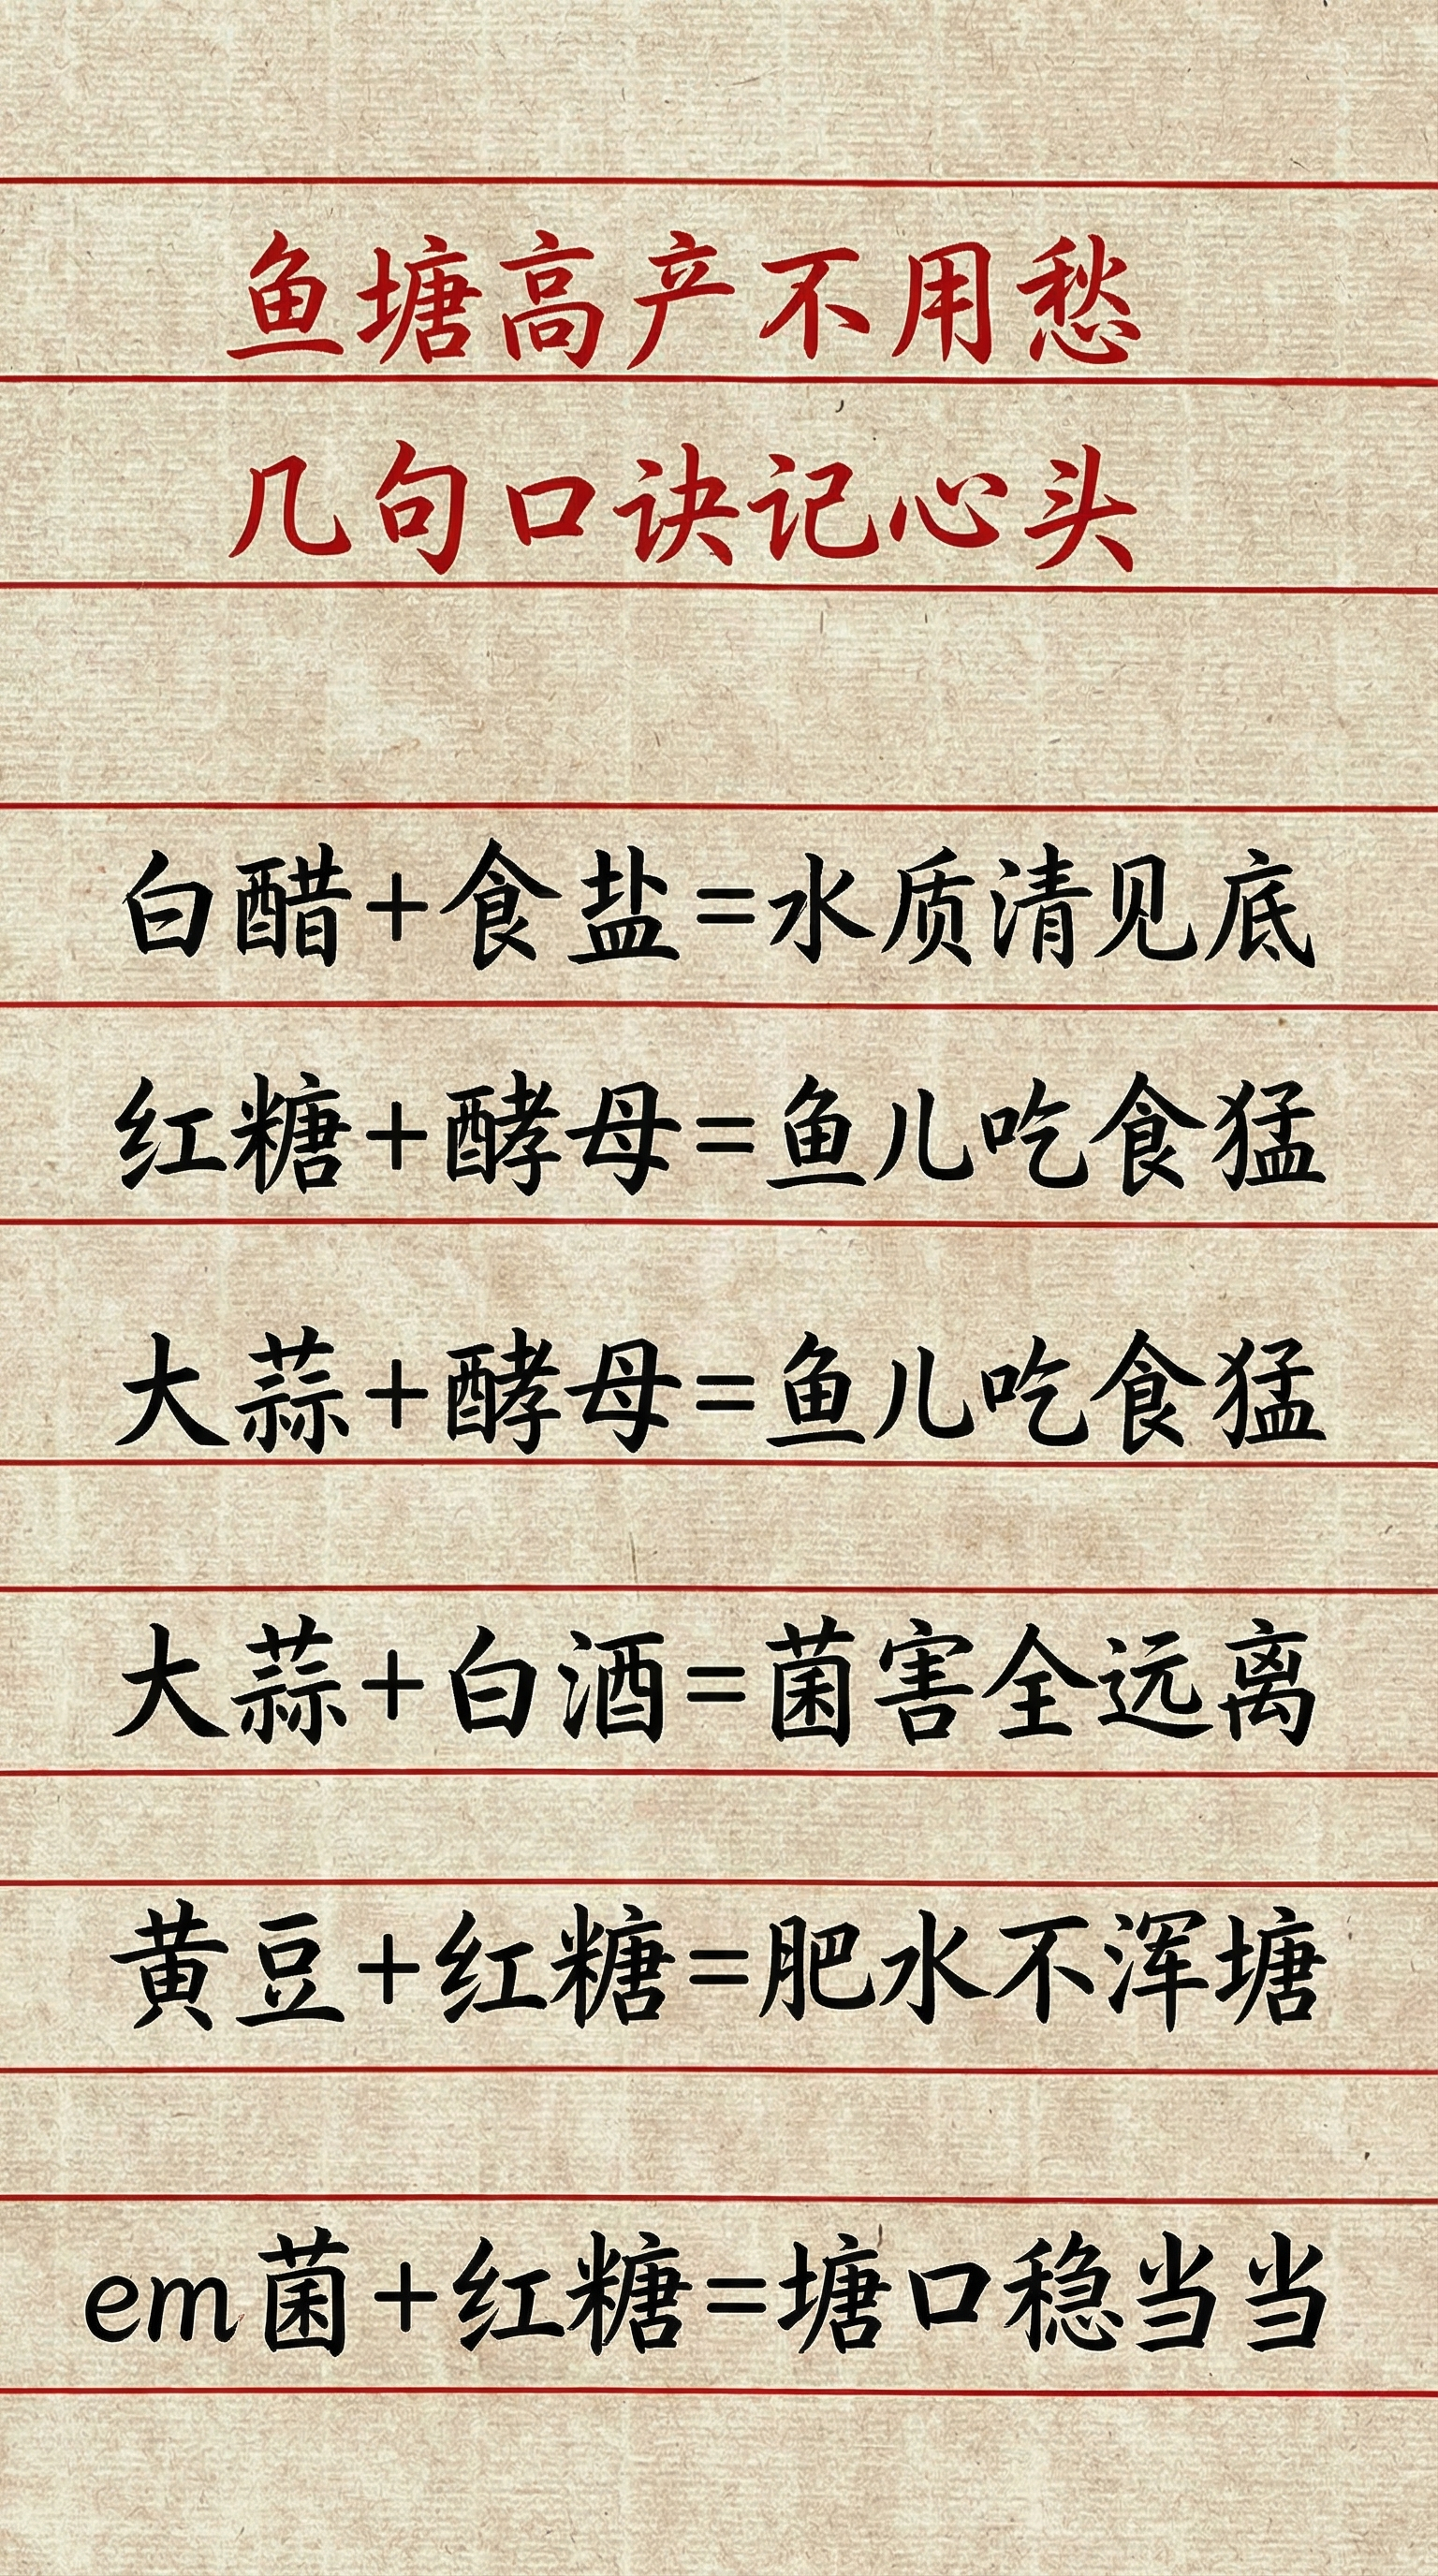 鱼塘高产不用愁
几句口诀记心头
白醋+食盐=水质清见底
红糖+酵母=鱼儿吃食猛
大蒜+酵母=鱼儿吃食猛
大蒜+白酒=菌害全远离
黄豆+红糖=肥水不浑塘
em菌+红糖=塘口稳当当